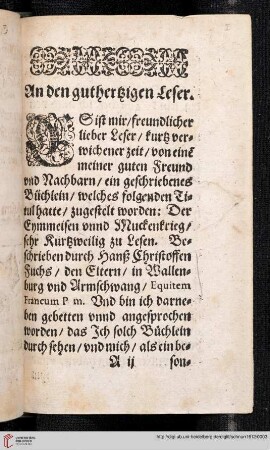 An den guthertzigen Leser.
ES ist mir/freundlicher
lieber Leser/kurtz ver-
wichener zeit/von einē
meiner guten Freund
vnd Nachbarn/ein geschriebenes
Büchlein/welches folgenden Ti-
tul hatte/zugestelt worden: Der
Eymmeisen vnnd Muckenkrieg/
sehr Kurtzweilig zu Lesen. Be-
schrieben durch Hanß Christoffen
Fuchs/den Eltern/in Wallen-
burg vnd Armschwang/Equitem
Francum P m. Vnd bin ich darne-
ben gebetten vnnd angesprochen
worden/das Ich solch Büchlein
durch sehen/vnd mich/als ein be-
A ij son-